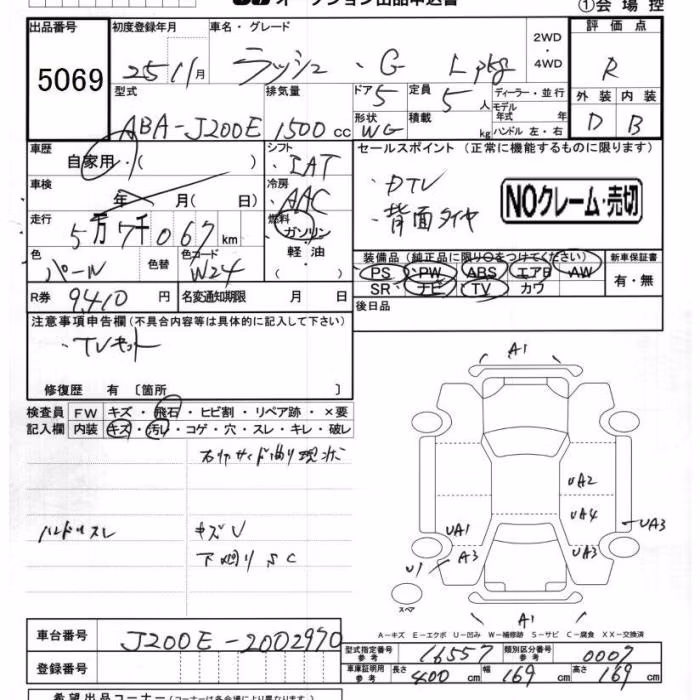 オークション出品申込書
①会場控
出品番号 初度登録年月 車名・グレード 2WD・4WD 評価点
5069 25 11月 ラッシュ・G Lpkg R
型式 排気量 ドア 5 定員 5人 ディーラー・並行 外装 内装
ABA-J200E 1500cc 形状 WG 積載 kg モデル年式 年 ハンドル 左・右 D B
車歴 自家用・( ) シフト ・IAT セールスポイント (正常に機能するものに限ります)
車検 年 月( 日) 冷房 ・AAC ・DTV
・背面タイヤ
NOクレーム・売切
走行 5万7千067km 燃料 ガソリン・軽油・( )
色 パール 色替 色コード W24
装備品(純正品に限り○をつけてください) 新車保証書
PS PW ABS エアB AW 有・無
SR ナビ TV カワ
R券 9,410円 名変通知期限 月 日 後日品
注意事項申告欄(不具合内容等は具体的に記入して下さい)
・TVキット
修復歴 有〔箇所 〕
検査員 FW キズ・飛石・ヒビ割・リペア跡・×要
記入欄 内装 キズ・汚レ・コゲ・穴・スレ・キレ・破レ
A1
UA2
UA4
ハンドルスレ キズU
下廻りSC
UA1 UA3
A3 UA3
U1
スペア
A1
A−キズ E−エクボ U−凹み W−補修跡 S−サビ C−腐食 XX−交換済
車台番号 J200E-2002970
型式指定番号 参考 16557 類別区分番号 参考 0007
登録番号 車庫証明用 参考 長さ 400cm 幅 169cm 高さ 169cm
希望出品コーナー(コーナーは各会場により異なります。)